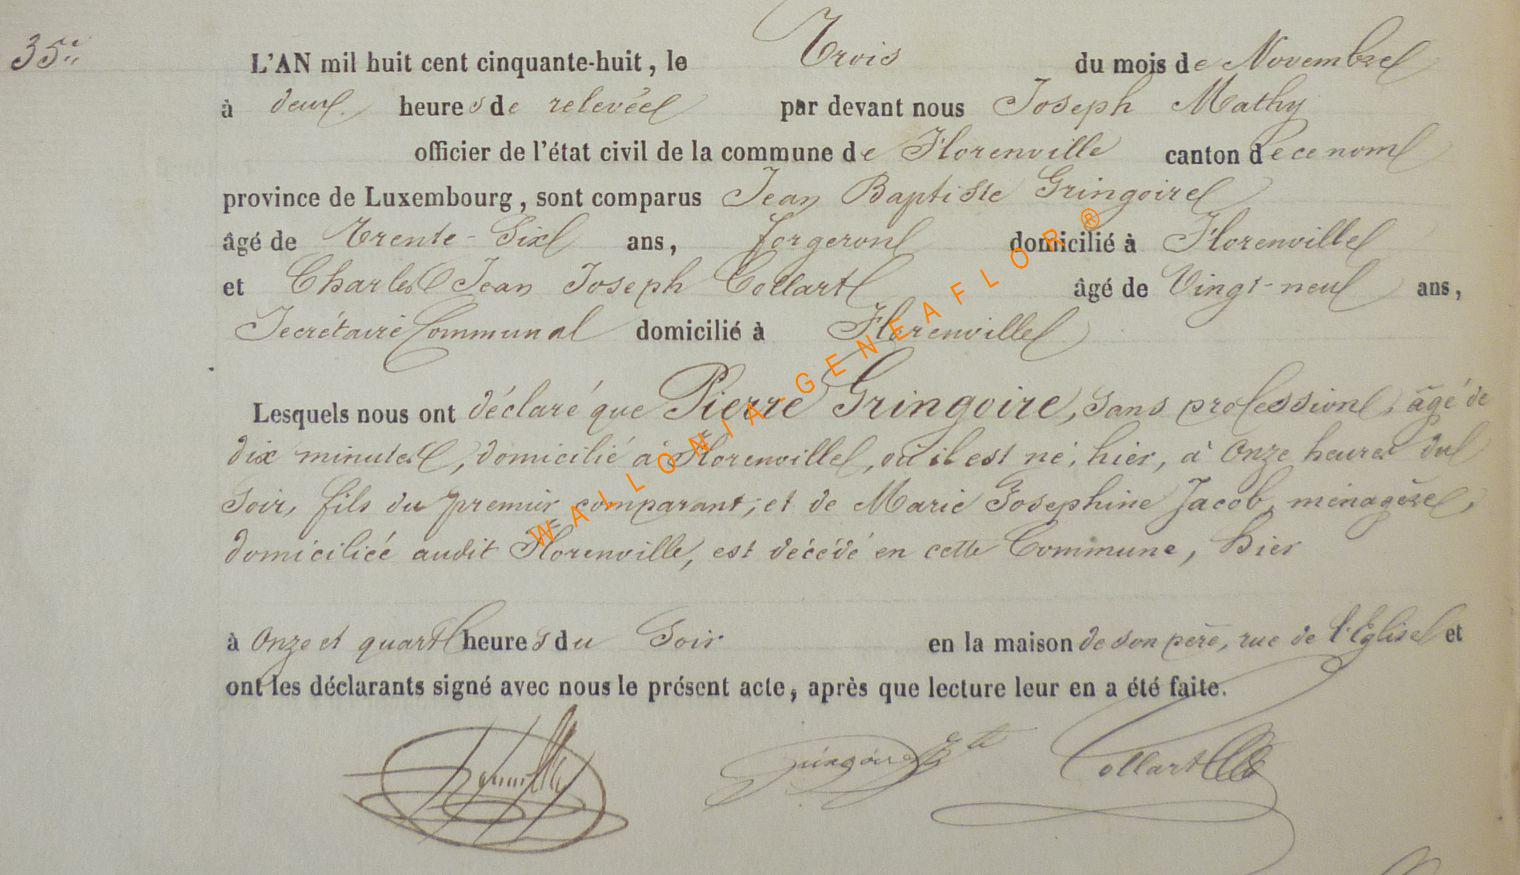 35.
L'AN mil huit cent cinquante-huit, le Trois du mois de Novembre
à deux heures de relevée par devant nous Joseph Mathy
officier de l'état civil de la commune de Florenville canton de ce nom
province de Luxembourg, sont comparus Jean Baptiste Gringoire
âgé de Trente-Six ans, forgeron domicilié à Florenville
et Charles Jean Joseph Collart âgé de Vingt-neuf ans,
Secrétaire Communal domicilié à Florenville
Lesquels nous ont déclaré que Pierre Gringoire, sans profession, âgé de
dix minutes, domicilié à Florenville, où il est né, hier, à Onze heures du
Soir, fils du premier comparant, et de Marie Josephine Jacob, ménagère,
domiciliée audit Florenville, est décédé en cette Commune, hier
à Onze et quart heures du Soir en la maison de son père, rue de l'Eglise et
ont les déclarants signé avec nous le présent acte, après que lecture leur en a été faite.
Gringoire Bte Collart
WALLONIA-GENEAFLOR®